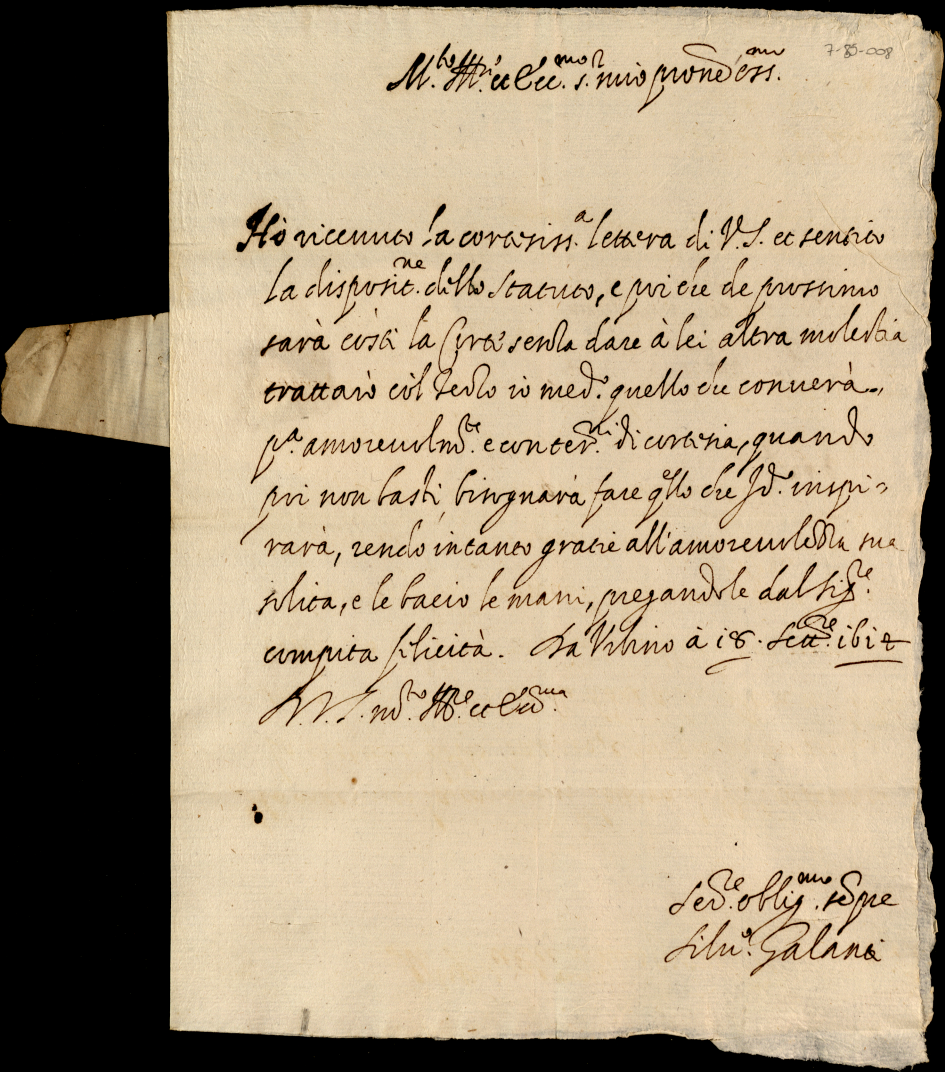 7-85-008
M.to Ill.re et Ecc.mo S.r mio p̄rone oss.mo
Hò riceuuto la cortesiss.a lettera di V.S. et sentito
la disposit.ne dello statuto, e poi che de prossimo
sarà costì la Corte senza dare à lei altra molestia
trattarò col io med.o quello che conuerà
p.a amoreuolm.te e con ter.ni di cortesia, quando
poi non basti, bisognarà fare q.ello che Id.o inspi=
rarà, rendo intanto gratie all'amoreuolezza sua
solita, e le bacio le mani, pregandole dal Sig.re
compita felicità. Da Vrbino à 18. Sett.re 1612
D. V. S. m.to Ill.re et Ecc.ma
Ser.re oblig.mo sēpre
Silu.o Galani